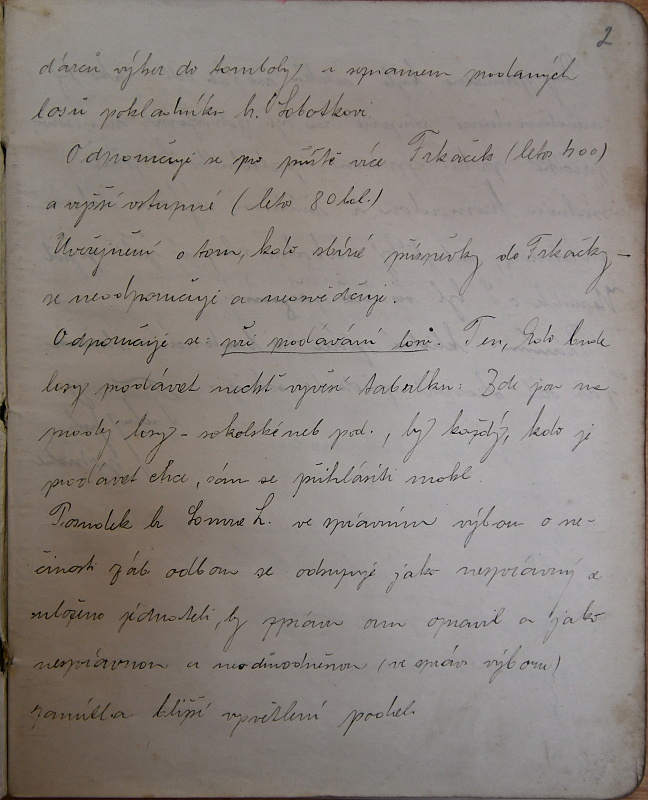 2
dárců výher do tomboly s seznamem prodaných
losů pokladníku br. Sobotkovi.
Odporučuje se pro příště více Frkaček (letos 400)
a vyšší vstupné (leto 80 hal.)
Uveřejnění o tom, kdo sbírá příspěvky do Frkačky –
se neodporučuje a neosvědčuje.
Odporučuje se: při prodávání losů. Ten, kdo bude
losy prodávat nechť vyvěsí tabulku: Zde jsou na
prodej losy – sokolské neb pod., by každý, kdo je
prodávat chce, sám se přihlásiti mohl.
Posudek br. L. ve správním výboru o ne-
činosti záb odboru se odsuzuje jako nesprávný a
uloženo jednateli, by zprávu onu opravil a jako
nesprávnou a neodůvodněnou (ve správ. výboru)
zamítl a bližší vysvětlení podal.